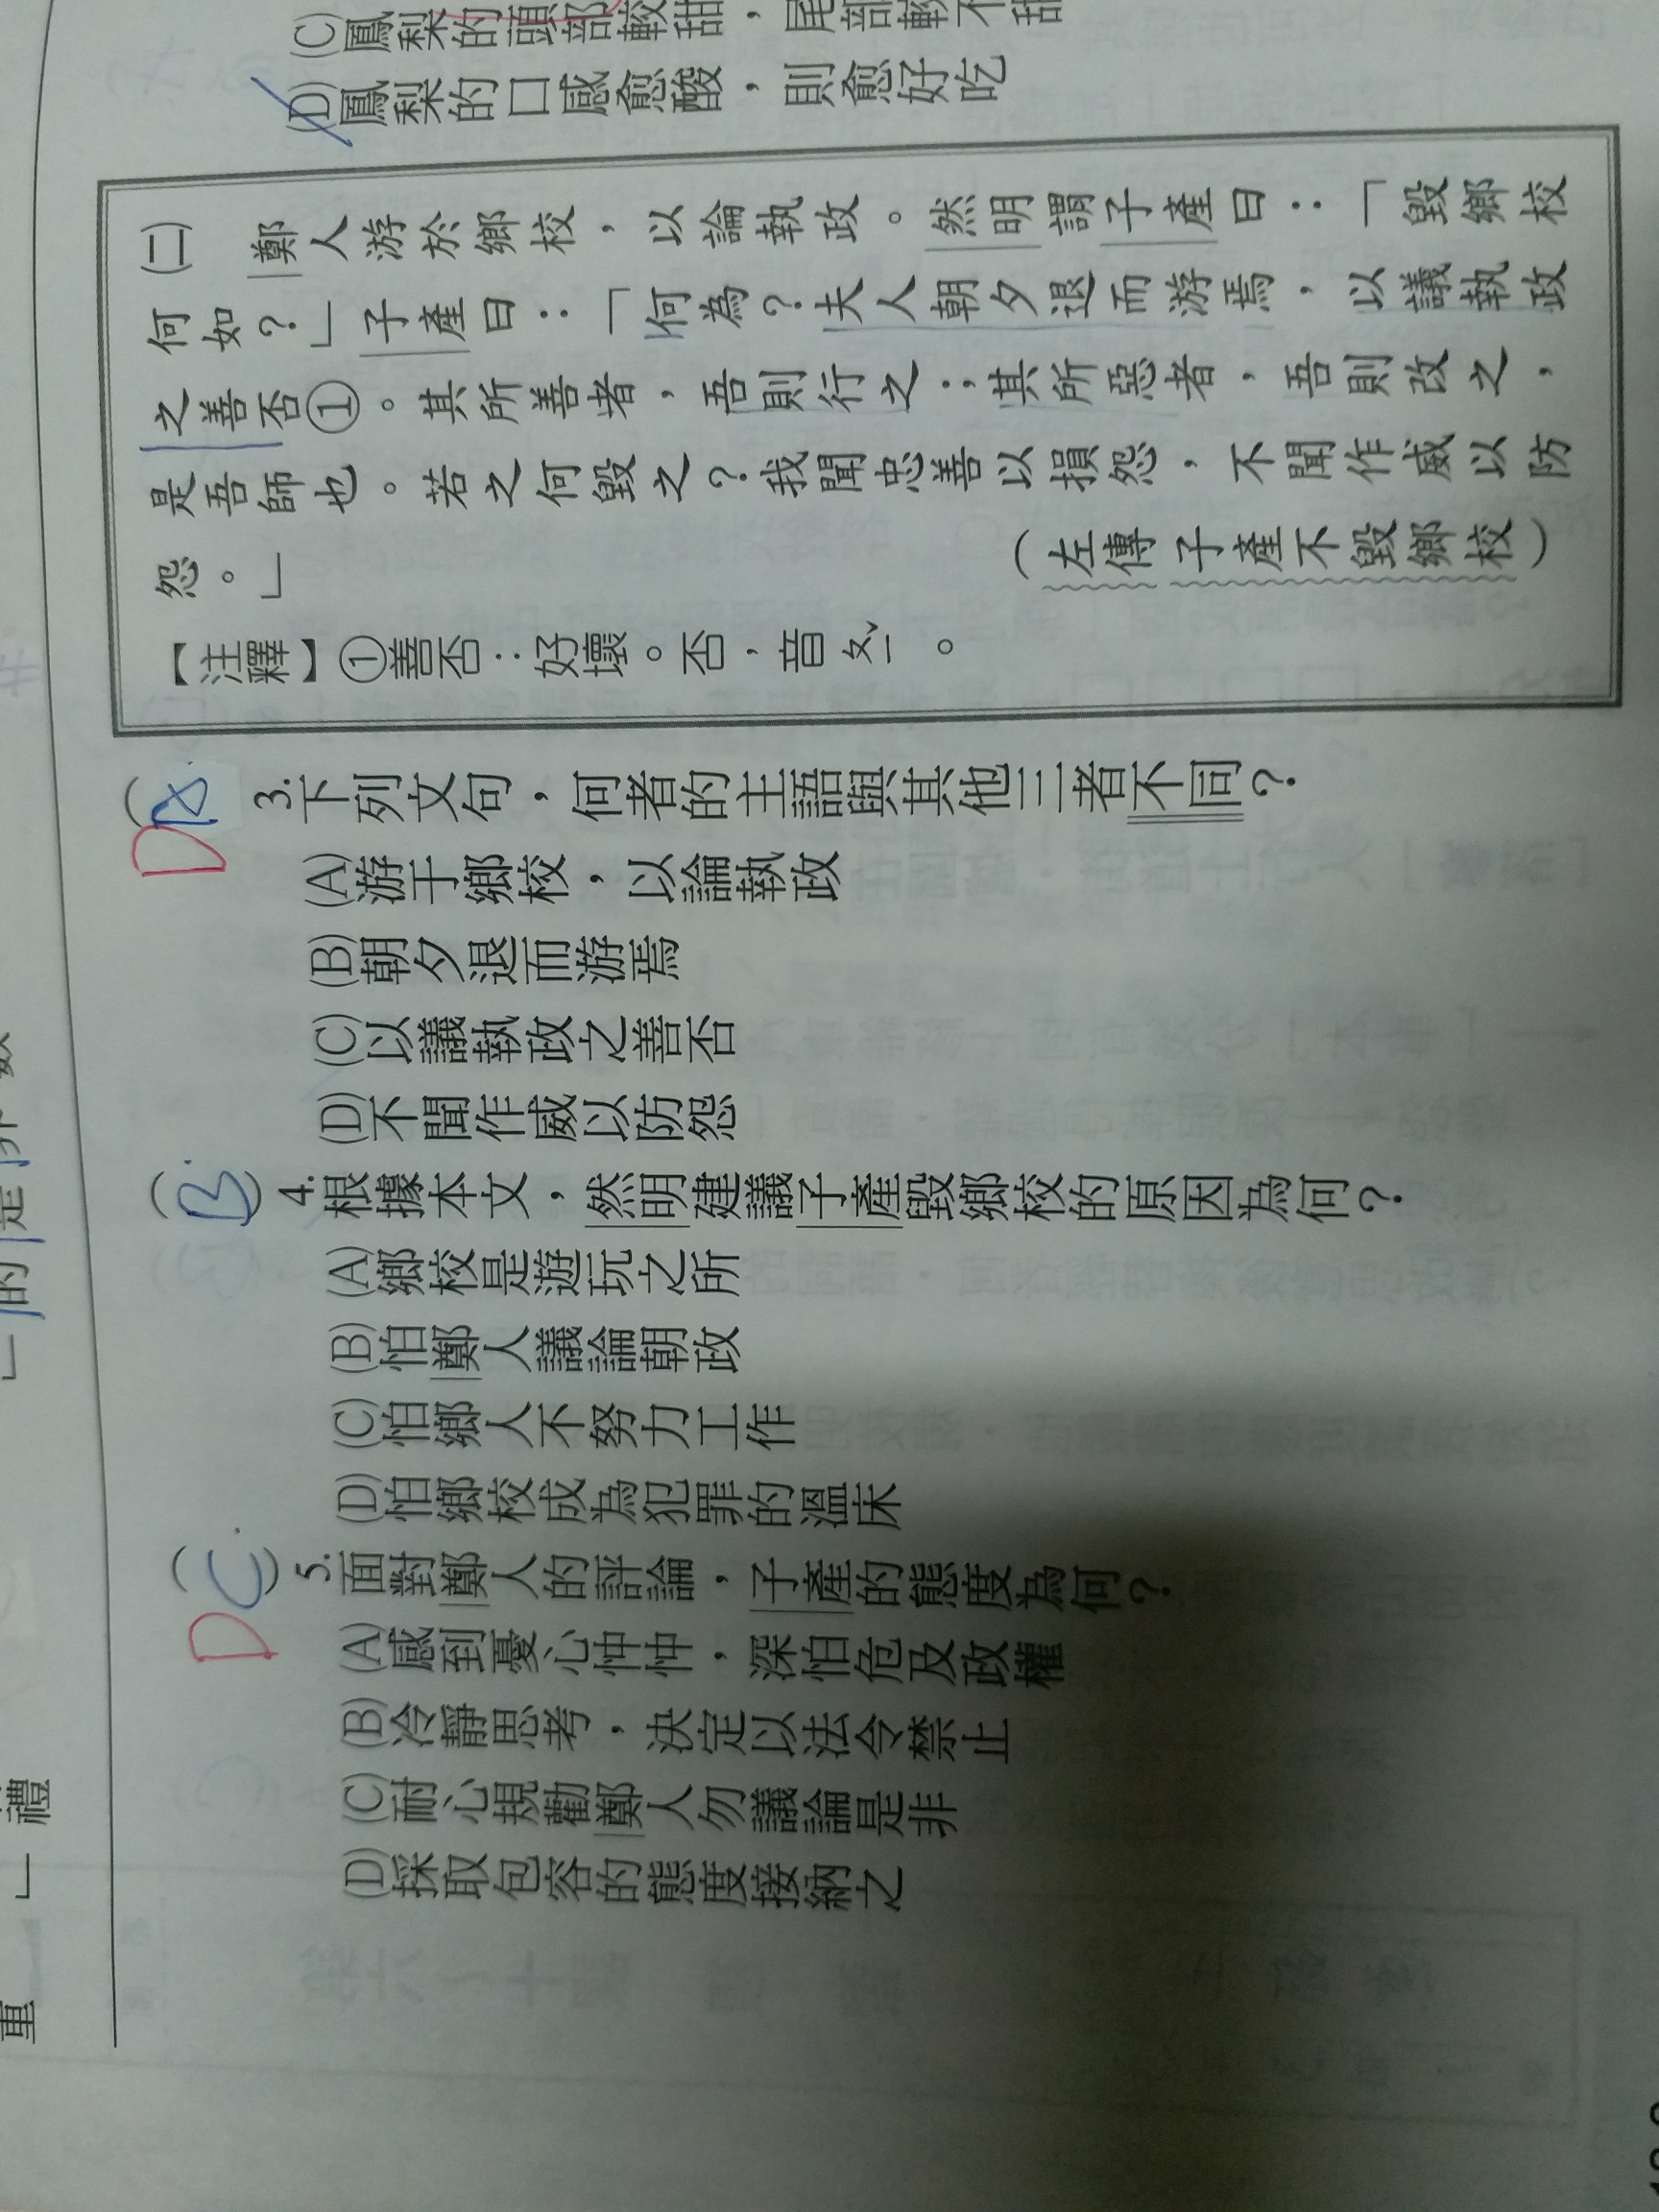 (C)鳳梨的頭部較甜，尾部較不甜
(D)鳳梨的口感愈酸，則愈好吃
(二)　鄭人游於鄉校，以論執政。然明謂子產曰：「毀鄉校
何如？」子產曰：「何為？夫人朝夕退而游焉，以議執政
之善否①。其所善者，吾則行之；其所惡者，吾則改之，
是吾師也。若之何毀之？我聞忠善以損怨，不聞作威以防
怨。」
（左傳 子產不毀鄉校）
【注釋】①善否：好壞。否，音ㄆㄧˇ。
D A 3.下列文句，何者的主語與其他三者不同？
(A)游于鄉校，以論執政
(B)朝夕退而游焉
(C)以議執政之善否
(D)不聞作威以防怨
(B) 4.根據本文，然明建議子產毀鄉校的原因為何？
(A)鄉校是遊玩之所
(B)怕鄭人議論朝政
(C)怕鄉人不努力工作
(D)怕鄉校成為犯罪的溫床
D (C) 5.面對鄭人的評論，子產的態度為何？
(A)感到憂心忡忡，深怕危及政權
(B)冷靜思考，決定以法令禁止
(C)耐心規勸鄭人勿議論是非
(D)採取包容的態度接納之